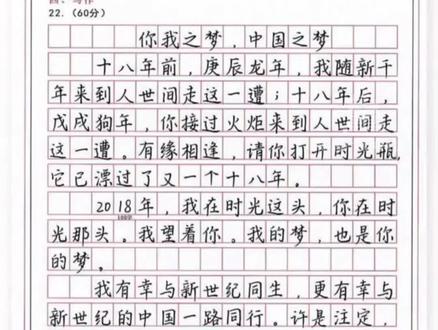 22.（60分）
你我之梦，中国之梦
十八年前，庚辰龙年，我随新千
年来到人世间走这一遭；十八年后，
戊戌狗年，你接过火炬来到人世间走
这一遭。有缘相逢，请你打开时光瓶，
它已漂过了又一个十八年。
2018年，我在时光这头，你在时
光那头。我望着你。我的梦，也是你
的梦。
我有幸与新世纪同生，更有幸与
新世纪的中国一路同行。许是注定，